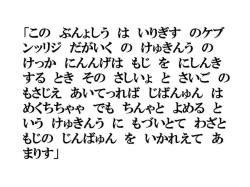 「この ぶんょしう は いりぎす のケブ
ンッリジ だがいく の けゅきんう の
けっか にんんげは もじ を にしんき
する とき その さしいょ と さいご の
もさじえ あいてっれば じばんゅん は
めくちちゃゃ でも ちんゃと よめる と
いう けゅきんう に もづいとて わざと
もじの じんばゅん を いかれえて あ
まりす」